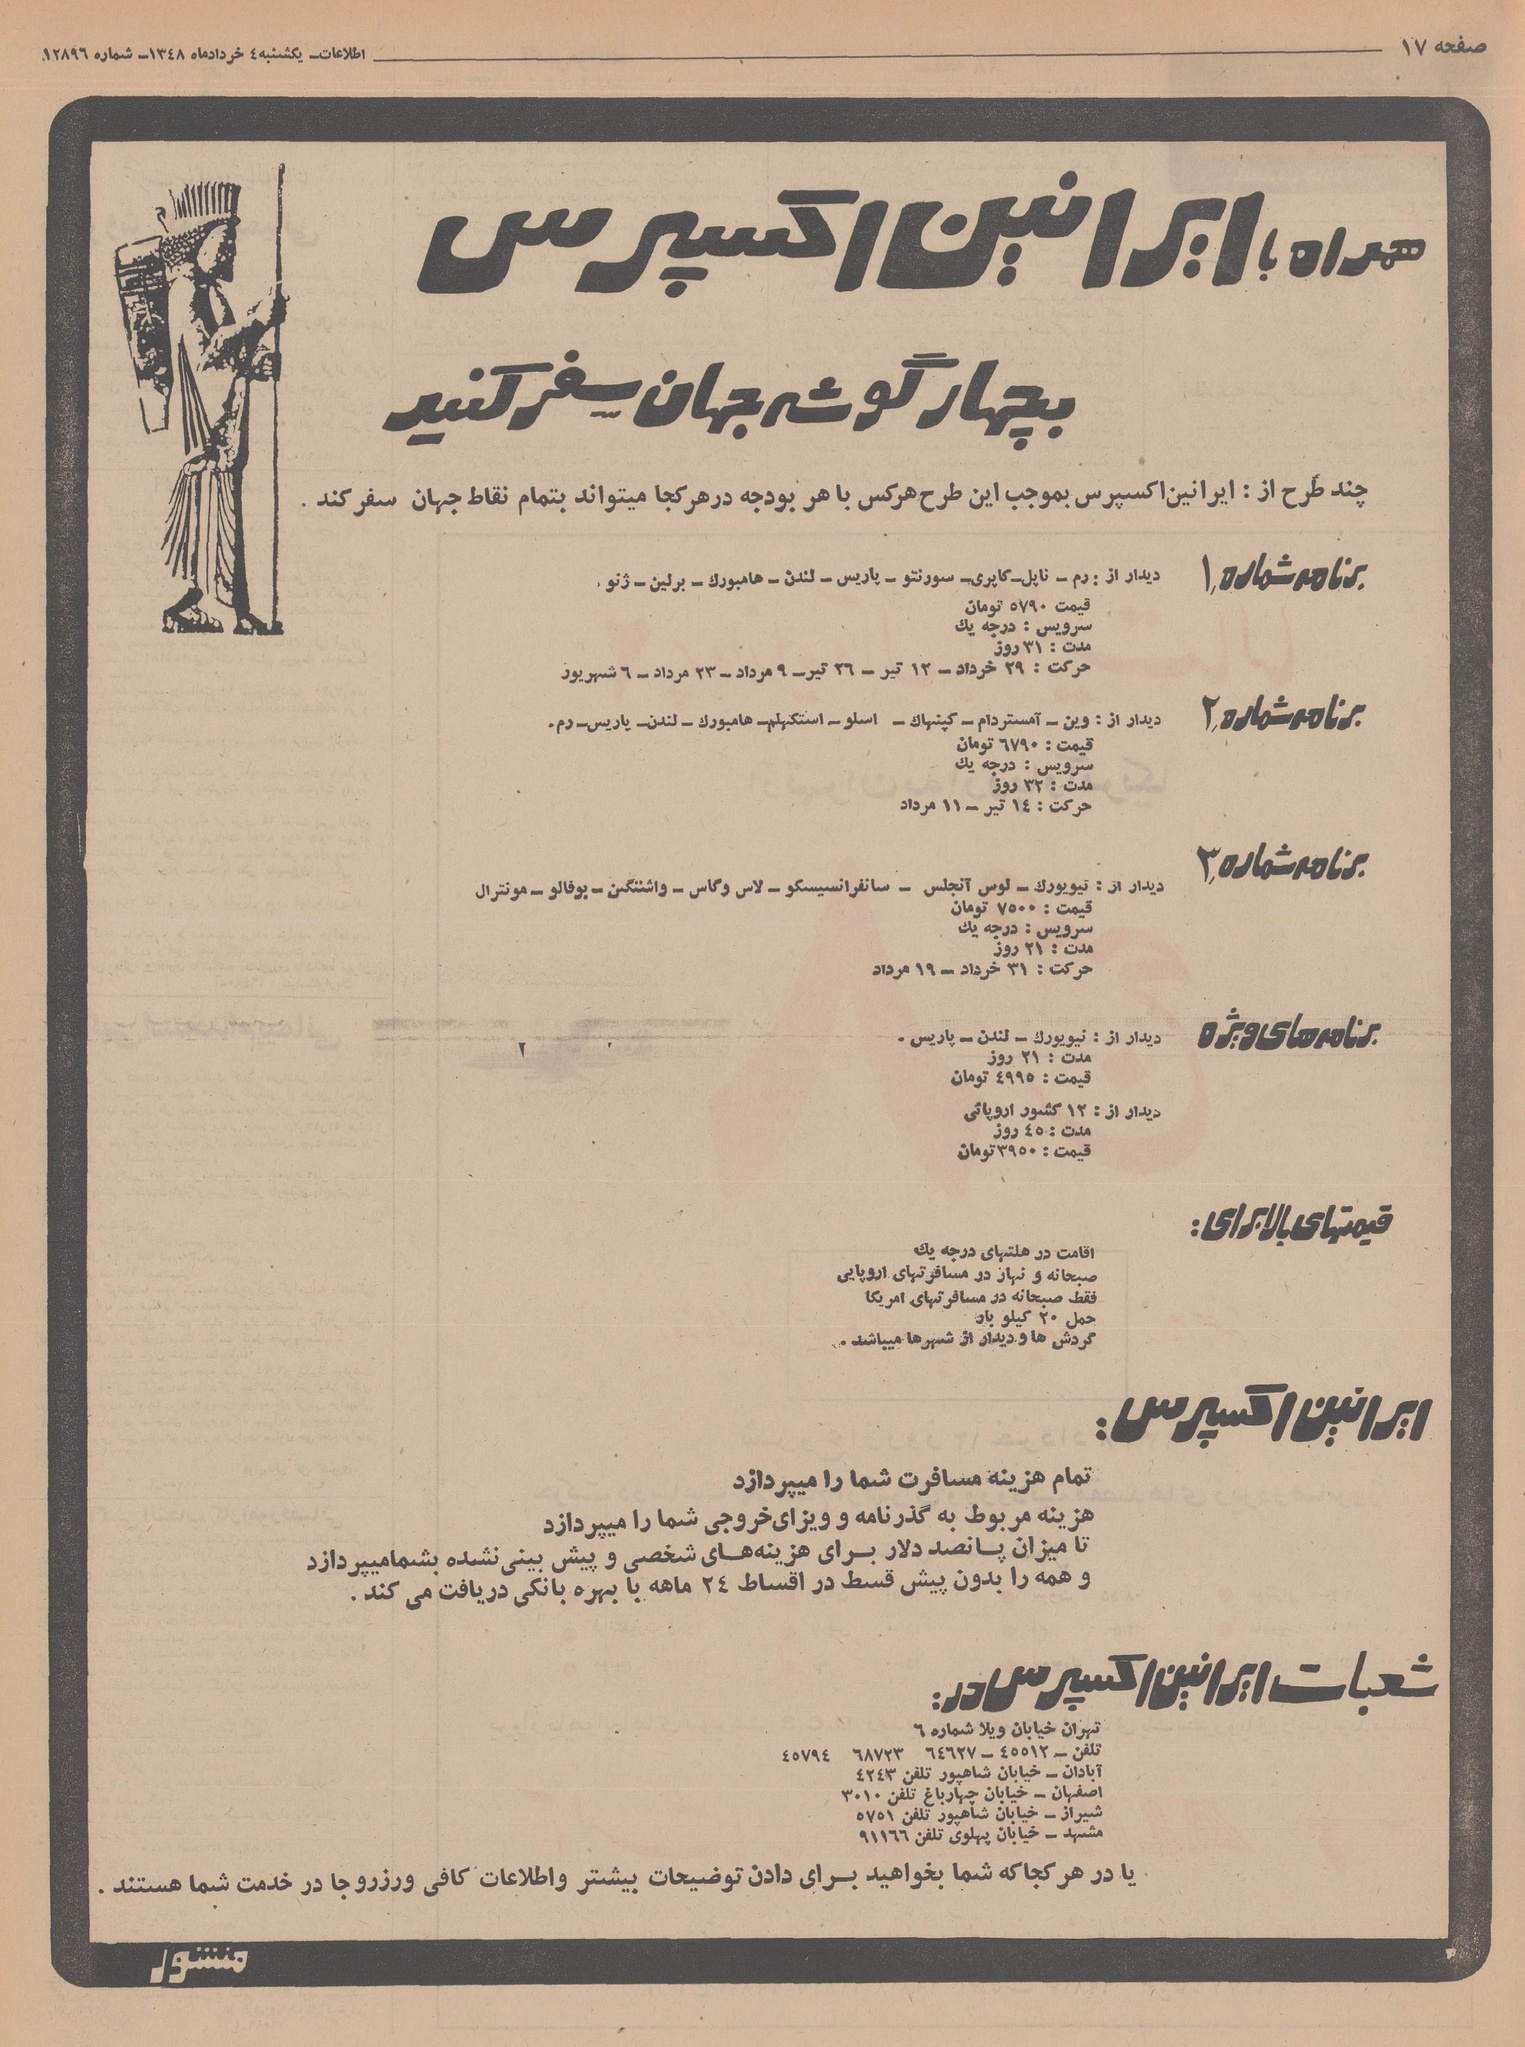 صفحه ۱۷
اطلاعات ـ یکشنبه ٤ خردادماه ۱۳٤۸ ـ شماره ۱۲۸۹٦
همراه با ایرانین اکسپرس
بچهار گوشه جهان سفر کنید
چند طرح از : ایرانین‌اکسپرس بموجب این طرح هرکس با هر بودجه درهرکجا میتواند بتمام نقاط جهان سفر کند .
برنامه شماره ۱
دیدار از : رم ـ ناپل ـ کاپری ـ سورنتو ـ پاریس ـ لندن ـ هامبورك ـ برلین ـ ژنو .
قیمت ۵۷۹۰ تومان
سرویس : درجه یك
مدت : ۳۱ روز
حرکت : ۲۹ خرداد ـ ۱۲ تیر ـ ۲٦ تیر ـ ۹ مرداد ـ ۲۳ مرداد ـ ٦ شهریور
برنامه شماره ۲
دیدار از : وین ـ آمستردام ـ کپنهاك ـ اسلو ـ استکهلم ـ هامبورك ـ لندن ـ پاریس ـ رم .
قیمت : ٦۷۹۰ تومان
سرویس : درجه یك
مدت : ۳۲ روز
حرکت : ۱٤ تیر ـ ۱۱ مرداد
برنامه شماره ۳
دیدار از : نیویورك ـ لوس آنجلس ـ سانفرانسیسکو ـ لاس وگاس ـ واشنگتن ـ بوفالو ـ مونترال
قیمت : ۷۵۰۰ تومان
سرویس : درجه یك
مدت : ۲۱ روز
حرکت : ۳۱ خرداد ـ ۱۹ مرداد
برنامه‌های ویژه
دیدار از : نیویورك ـ لندن ـ پاریس .
مدت : ۲۱ روز
قیمت : ٤۹۹۵ تومان
دیدار از : ۱۲ کشور اروپائی
مدت : ٤۵ روز
قیمت : ۳۹۵۰ تومان
قیمتهای بالا برای :
اقامت در هتلهای درجه یك
صبحانه و نهار در مسافرتهای اروپایی
فقط صبحانه در مسافرتهای امریکا
حمل ۲۰ کیلو بار
گردش ها و دیدار از شهرها میباشد .
ایرانین اکسپرس :
تمام هزینه مسافرت شما را میپردازد
هزینه مربوط به گذرنامه و ویزای خروجی شما را میپردازد
تا میزان پانصد دلار برای هزینه‌های شخصی و پیش بینی نشده بشما میپردازد
و همه را بدون پیش قسط در اقساط ۲٤ ماهه با بهره بانکی دریافت می کند .
شعبات ایرانین اکسپرس در :
تهران خیابان ویلا شماره ٦
تلفن ـ ٤۵۵۱۲ ـ ٦٤٦۲۷ ٦۸۷۲۳ ٤۵۷۹٤
آبادان ـ خیابان شاهپور تلفن ٤۲٤۳
اصفهان ـ خیابان چهارباغ تلفن ۳۰۱۰
شیراز ـ خیابان شاهپور تلفن ۵۷۵۱
مشهد ـ خیابان پهلوی تلفن ۹۱۱٦٦
یا در هر کجا که شما بخواهید برای دادن توضیحات بیشتر و اطلاعات کافی ورزرو جا در خدمت شما هستند .
منشور